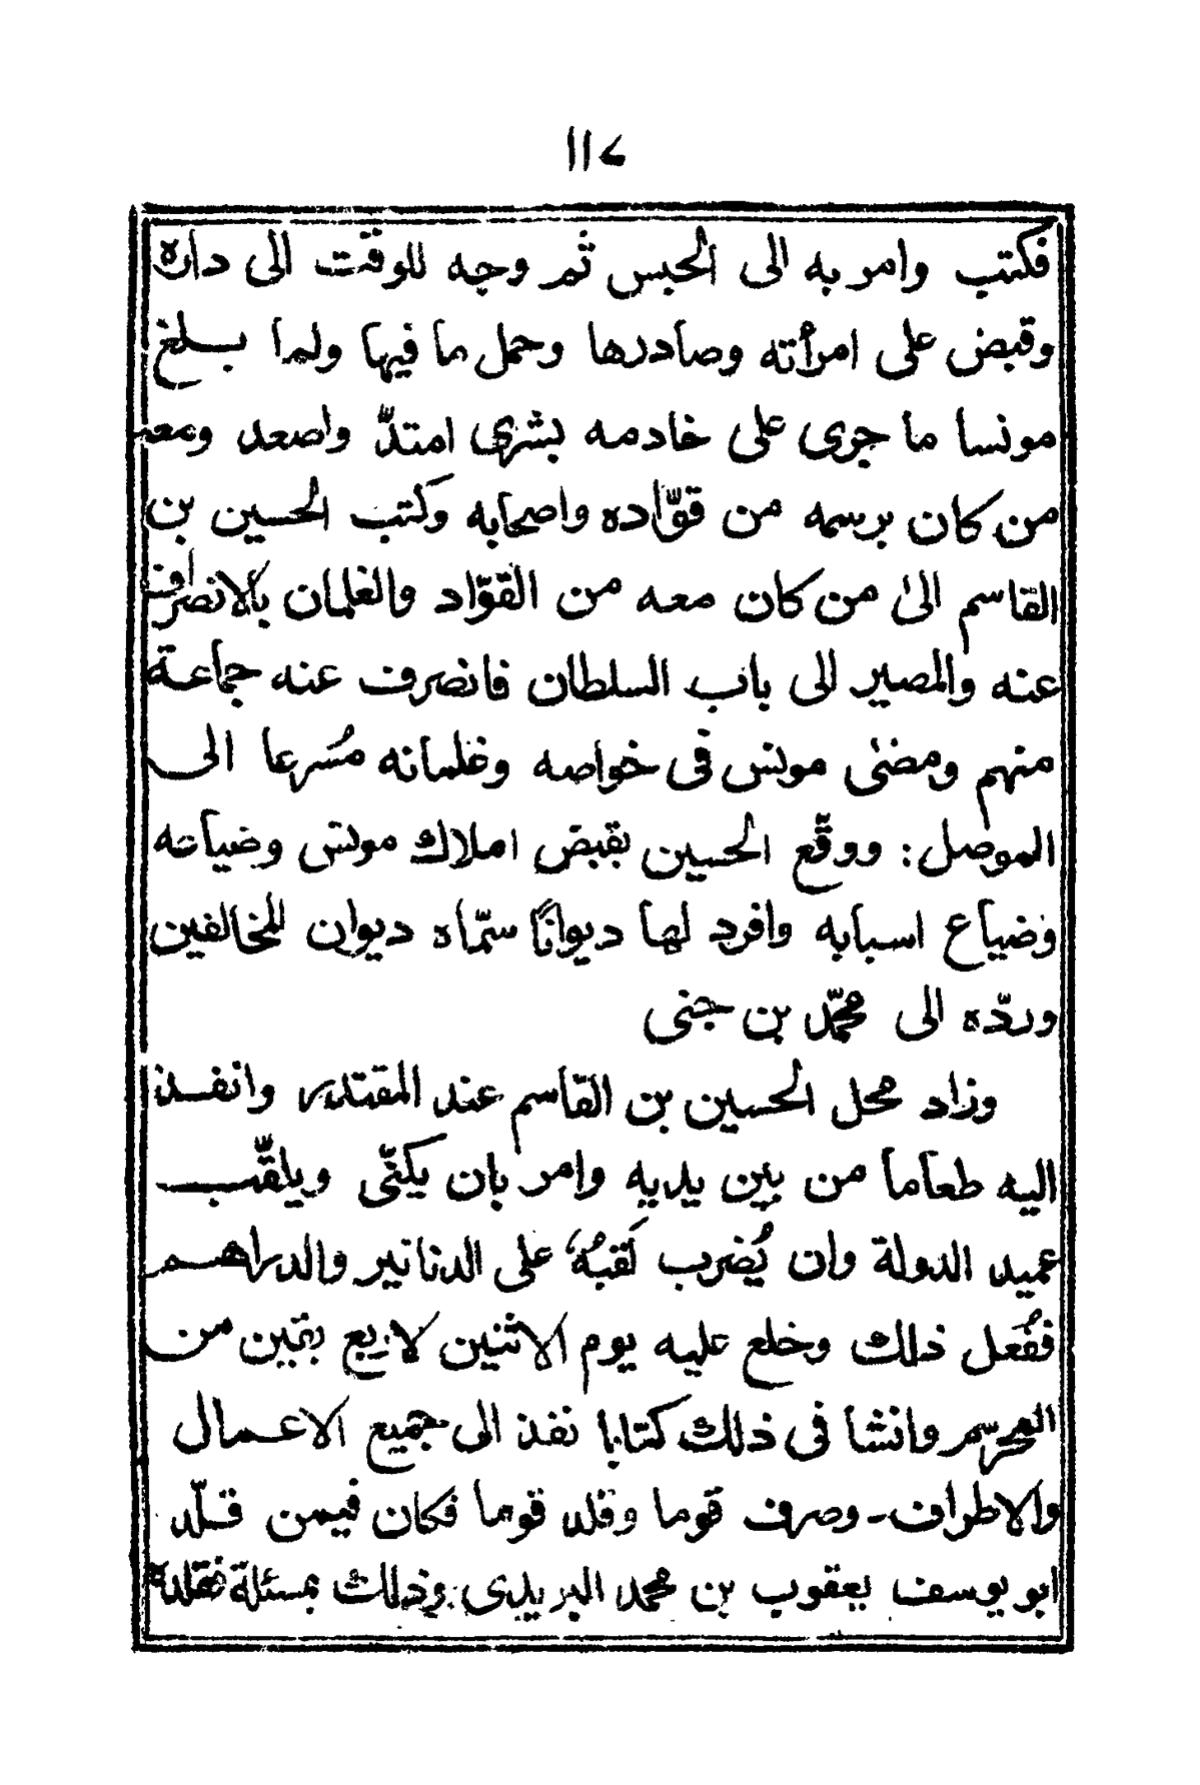 ١١٧
فكتب وامر به الى الحبس ثم وجه للوقت الى داره
وقبض على امرأته وصادرها وحمل ما فيها ولما بلغ
مونسا ما جرى على خادمه بشرى امتدّ واصعد ومعه
من كان برسمه من قوّاده واصحابه وكتب الحسين بن
القاسم الى من كان معه من القوّاد والغلمان بالانصراف
عنه والمصير الى باب السلطان فانصرف عنه جماعة
منهم ومضى مونس فى خواصه وغلمانه مُسرعا الى
الموصل: ووقّع الحسين بقبض املاك مونس وضياعه
وضياع اسبابه وافرد لها ديوانًا سمّاه ديوان المخالفين
وردّه الى محمّد بن جنى
وزاد محل الحسين بن القاسم عند المقتدر وانفذ
اليه طعاما من بين يديه وامر بان يكنّى ويلقّب
عميد الدولة وان يُضرب لَقبُهُ على الدنانير والدراهم
ففُعل ذلك وخلع عليه يوم الاثنين لاربع بقين من
المحرّم وانشا فى ذلك كتابا نفذ الى جميع الاعمال
والاطراف - وصرف قوما وقلد قوما فكان فيمن قلّد
ابو يوسف يعقوب بن محمد البريدى وذلك بمسئلة فقلده